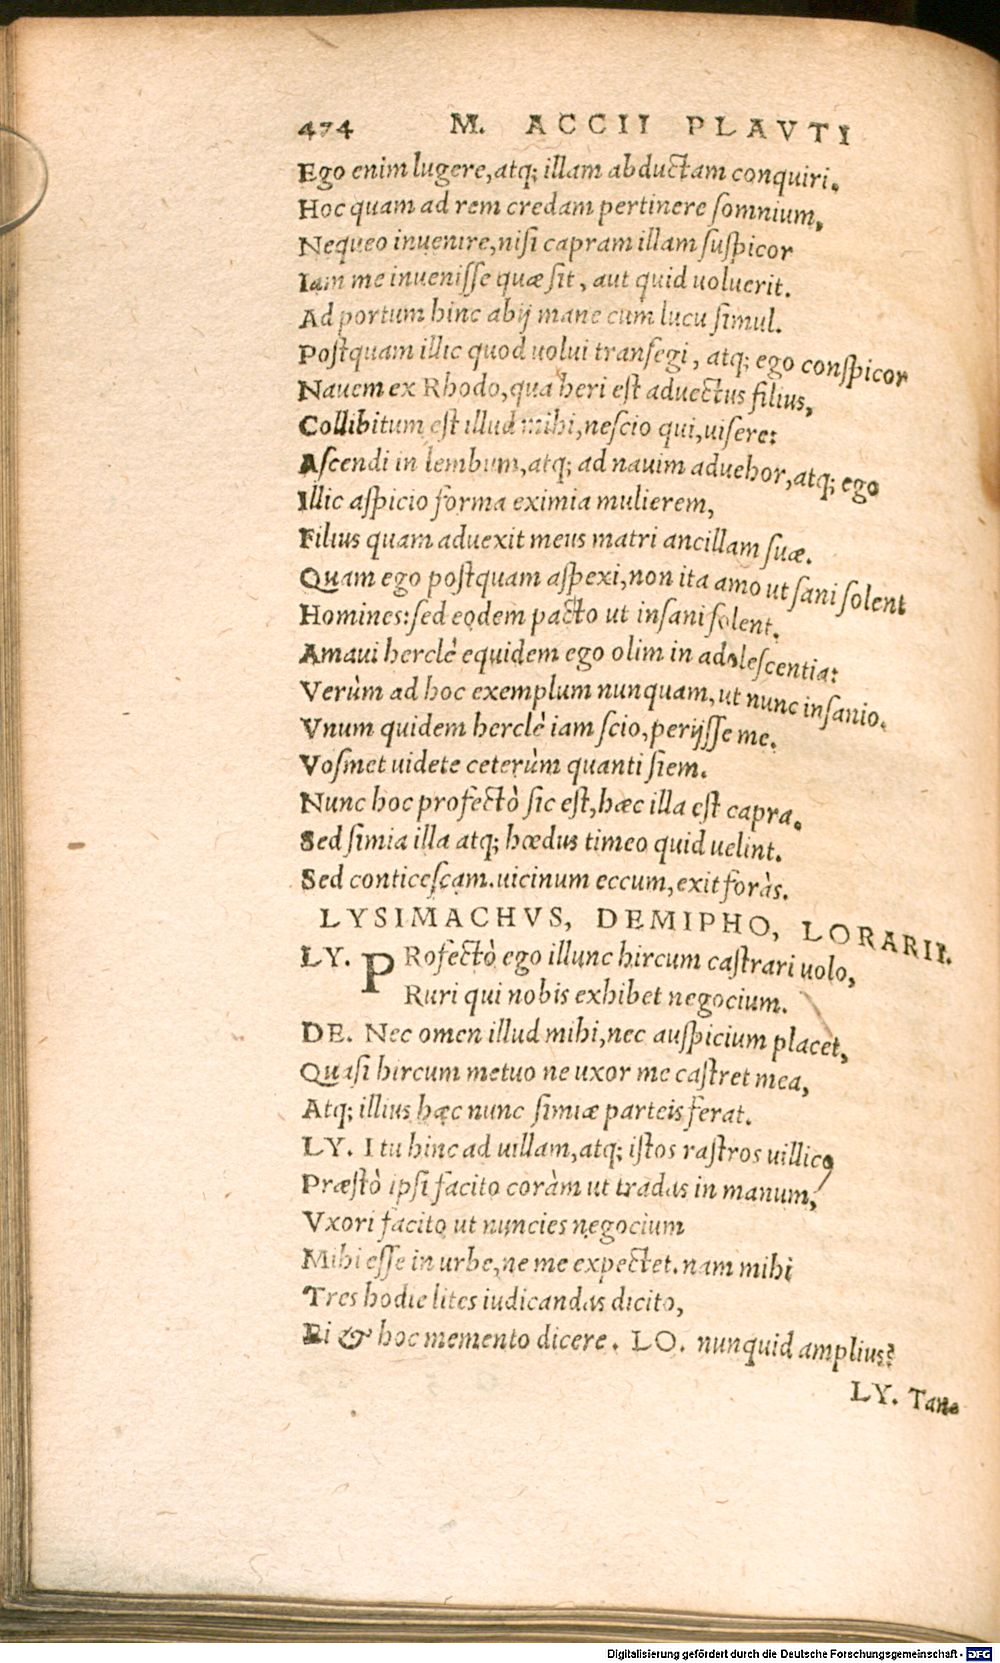 474 M. ACCII PLAVTI
Ego enim lugere, atq; illam abductam conquiri.
Hoc quam ad rem credam pertinere somnium,
Nequeo inuenire, nisi capram illam suspicor
Iam me inuenisse quæ sit, aut quid uoluerit.
Ad portum hinc abij mane cum lucu simul.
Postquam illic quod uolui transegi, atq; ego conspicor
Nauem ex Rhodo, qua heri est aduectus filius,
Collibitum est illud mihi, nescio qui, uisere:
Ascendi in lembum, atq; ad nauim aduehor, atq; ego
Illic aspicio forma eximia mulierem,
Filius quam aduexit meus matri ancillam suæ.
Quam ego postquam aspexi, non ita amo ut sani solent
Homines: sed eodem pacto ut insani solent.
Amaui herclè equidem ego olim in adolescentia:
Verùm ad hoc exemplum nunquam, ut nunc insanio.
Vnum quidem herclè iam scio, perijsse me.
Vosmet uidete ceterùm quanti siem.
Nunc hoc profectò sic est, hæc illa est capra.
Sed simia illa atq; hœdus timeo quid uelint.
Sed conticescam. uicinum eccum, exit foràs.
LYSIMACHVS, DEMIPHO, LORARII.
LY. PRofectò ego illunc hircum castrari uolo,
Ruri qui nobis exhibet negocium.
DE. Nec omen illud mihi, nec auspicium placet,
Quasi hircum metuo ne uxor me castret mea,
Atq; illius hæc nunc simiæ parteis ferat.
LY. I tu hinc ad uillam, atq; istos rastros uillico
Præstò ipsi facito coràm ut tradas in manum,
Vxori facito ut nuncies negocium
Mihi esse in urbe, ne me expectet. nam mihi
Tres hodie lites iudicandas dicito,
Ei & hoc memento dicere. LO. nunquid amplius?
LY. Tan=
Digitalisierung gefördert durch die Deutsche Forschungsgemeinschaft - DFG